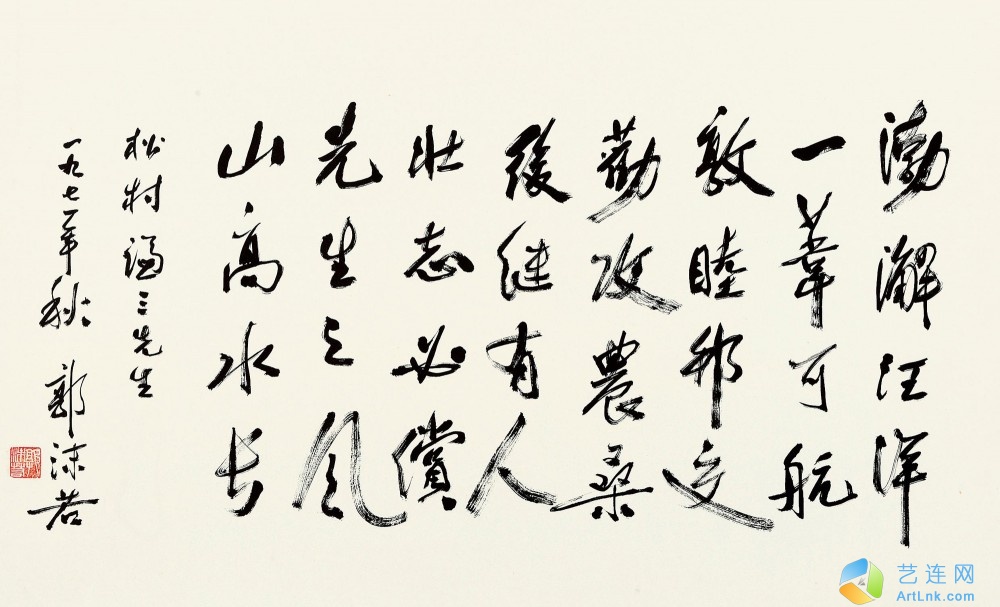 渤澥汪洋
一葦可航
敦睦邦交
勸攻農桑
後继有人
壮志必償
先生之风
山高水长
松村谦三先生
一九七一年秋 郭沫若
艺连网
ArtLnk.com